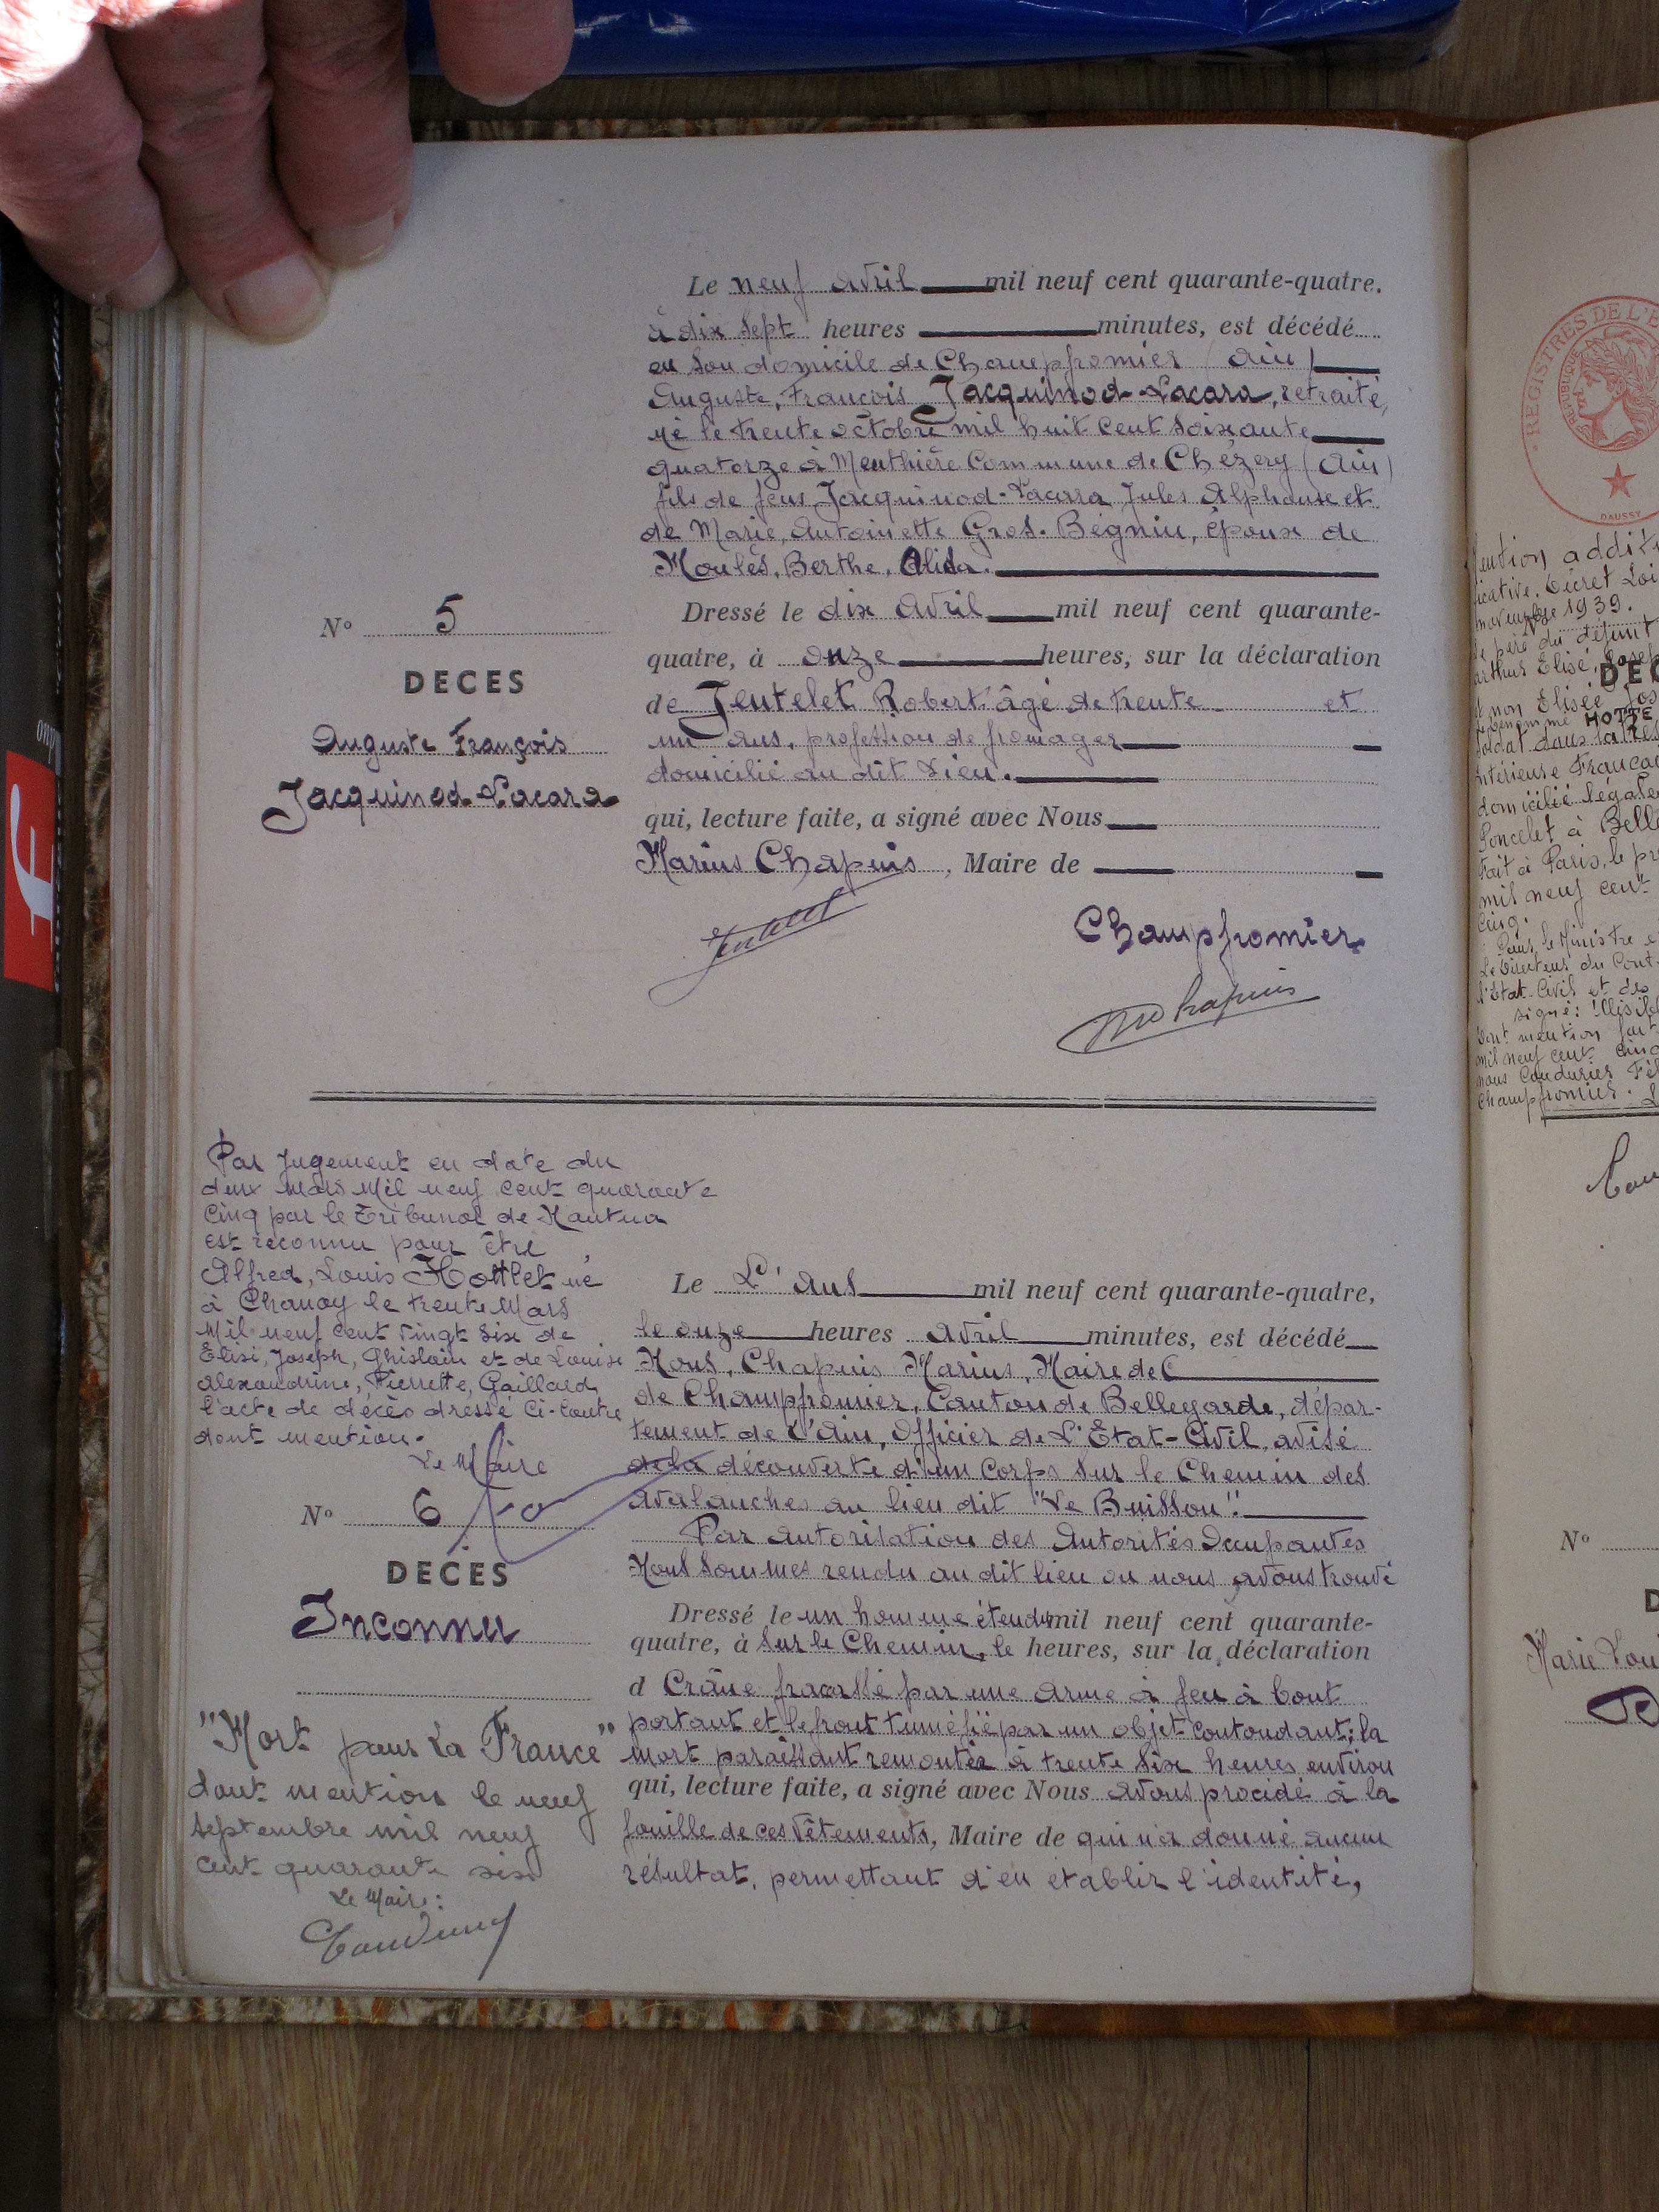 Le neuf avril mil neuf cent quarante-quatre,
à dix sept heures minutes, est décédé
en son domicile de Champfromier (Ain)
Auguste, François Jacquinod-Lacara, retraité,
né le trente octobre mil huit cent soixante
quatorze à Menthière Commune de Chézery (Ain)
fils de feus Jacquinod-Lacara Jules Alphonse et
de Marie, Antoinette Gros-Begnin, époux de
Moulés, Berthe, Alida.
Nº 5
DECES
Auguste François
Jacquinod-Lacara
Dressé le dix Avril mil neuf cent quarante-
quatre, à onze heures, sur la déclaration
de Jentelet Robert âgé de trente et
un ans, profession de fromager
domicilié au dit Lieu.
qui, lecture faite, a signé avec Nous
Marius Chapuis, Maire de
Champfromier
Jentelet
M Chapuis
Par Jugement en date du
deux Mars Mil neuf cent quarante
cinq par le Tribunal de Nantua
est reconnu pour être
Alfred, Louis Hottlet né
à Chanay le trente Mars
Mil neuf cent vingt six de
Elisi, Joseph, Ghislain et de Louise
Alexandrine, Pierrette, Gaillard,
l'acte de décès dressé Ci-Contre
dont mention.
Le Maire
Nº 6
DECES
Inconnu
"Mort pour La France"
dont mention le neuf
septembre mil neuf
cent quarante six
Le Maire:
Le L'ans mil neuf cent quarante-quatre,
le onze heures Avril minutes, est décédé
Nous, Chapuis Marius, Maire de C
de Champfromier, Canton de Bellegarde, dépar-
tement de L'Ain, Officier de L'Etat-Civil, avisé
de la découverte d'un Corps sur le Chemin des
avalanches au lieu dit "Le Buisson".
Par autorisation des Autorités Occupantes
Nous sommes rendu au dit lieu ou nous avons trouvé
Dressé le un homme étendu mil neuf cent quarante-
quatre, à sur le Chemin, le heures, sur la déclaration
d Crâne fracassé par une arme à feu à bout
portant et le front tuméfié par un objet contondant; la
mort paraissant remonter à trente six heures environ
qui, lecture faite, a signé avec Nous avons procédé à la
fouille de ces vêtements, Maire de qui n'a donné aucun
résultat, permettant d'en établir l'identité,
REGISTRES DE L'E
DAUSSY
novembre 1939.
DEC
HOTTE
domicilié légale
Poncelet à Belle
Fait à Paris, le pr
mil neuf cent
cinq.
l'Etat-Civil et des
signé: Illisible
Champfromier.
Nº
D
Marie Lou